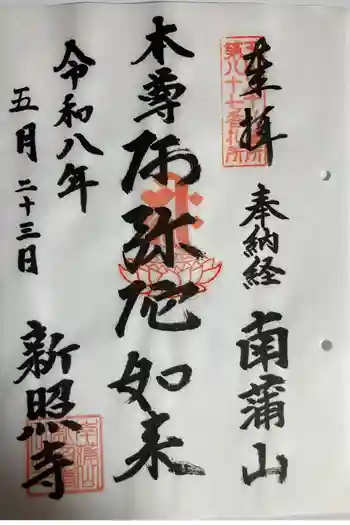 登拝
奉納経
南蒲山
本尊阿弥陀如来
令和八年
五月二十三日
新照寺
第八十七番札所